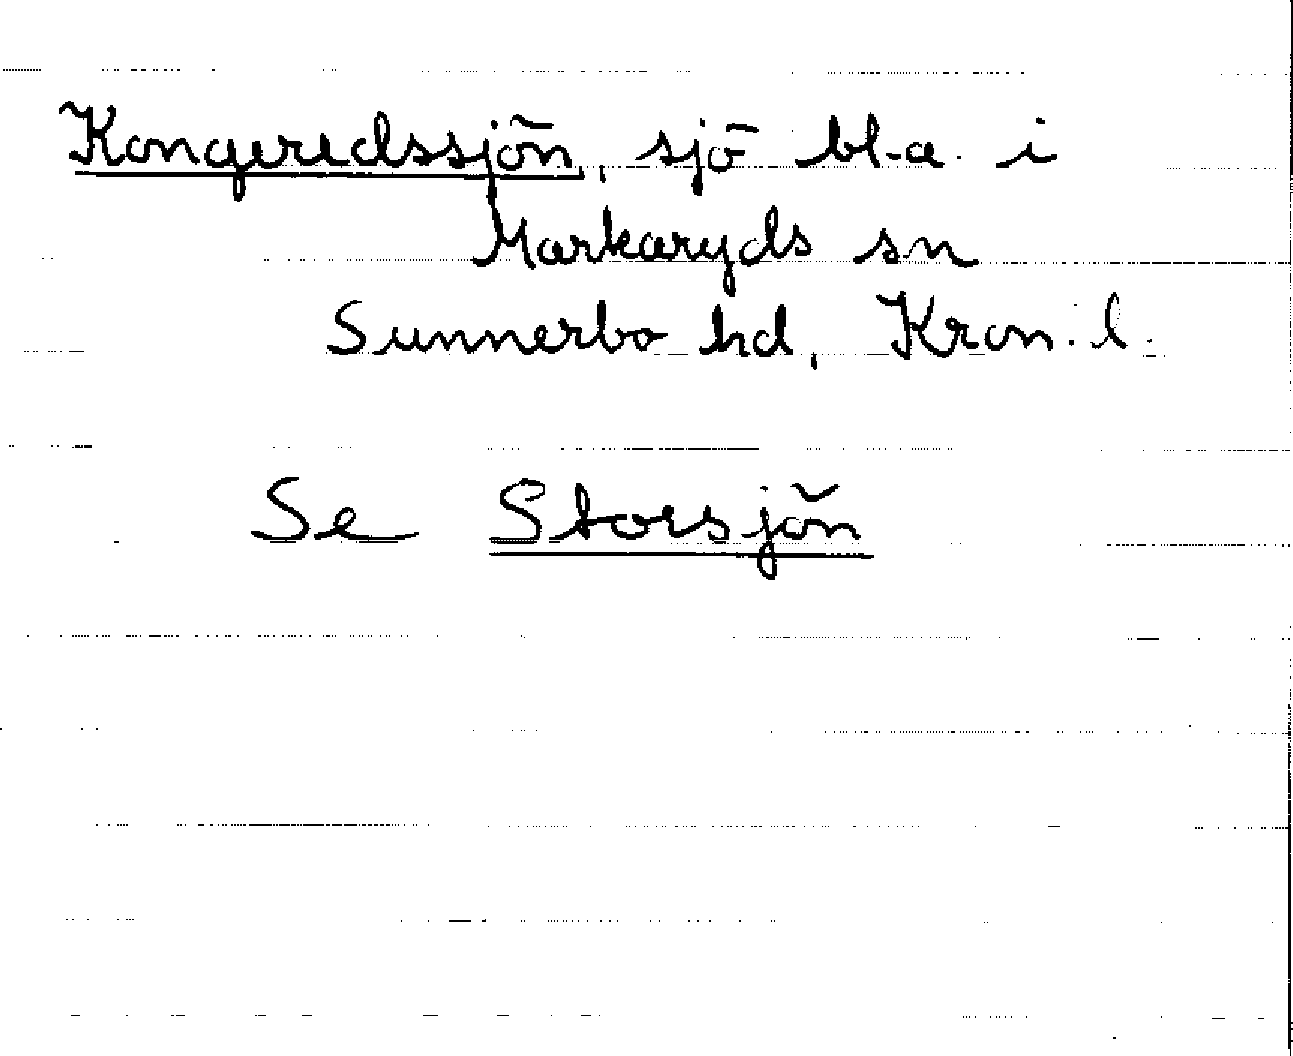 Kongeredssjön, sjö bl.a. i
Markaryds sn
Sunnerbo hd, Kron. l.
Se Storsjön